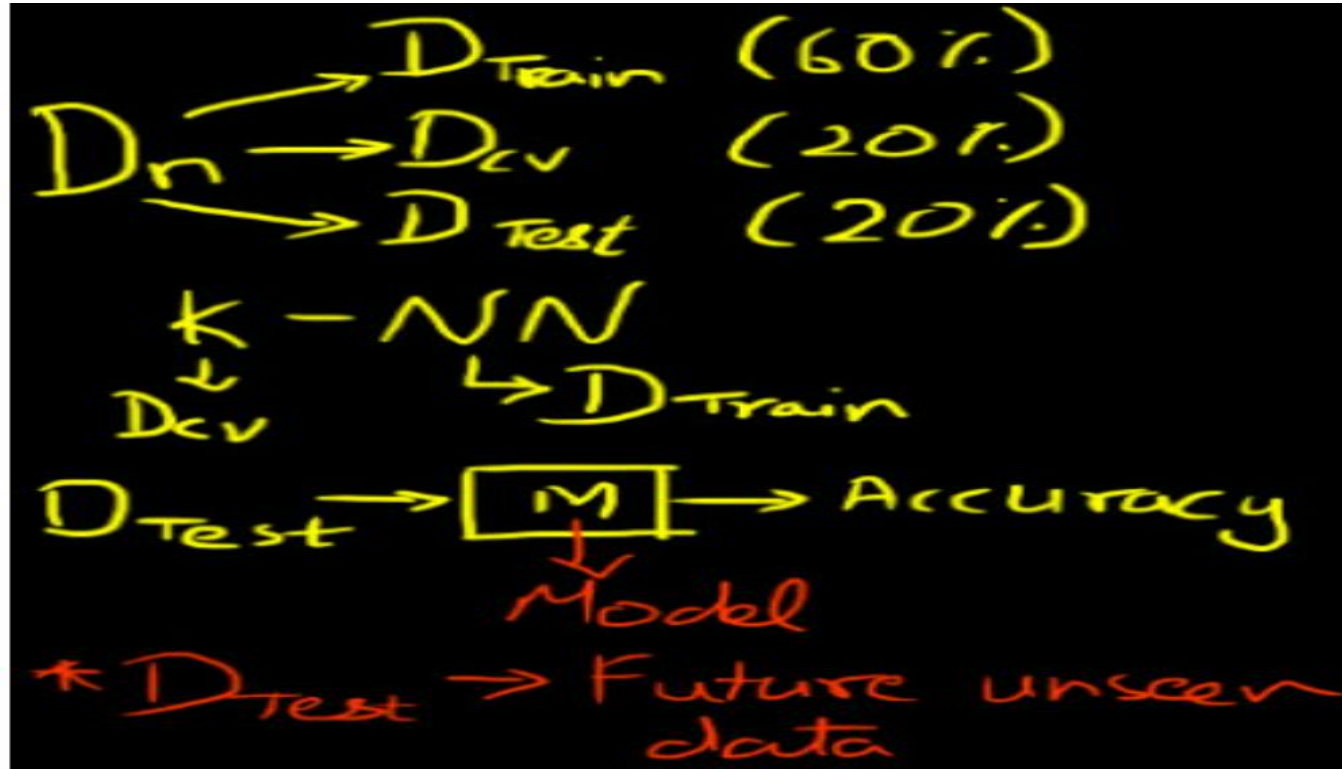 D Train (60%)
Dn → Dcv (20%)
D Test (20%)
K - NN
Dcv D Train
D Test → M → Accuracy
Model
* D Test → Future unseen
data